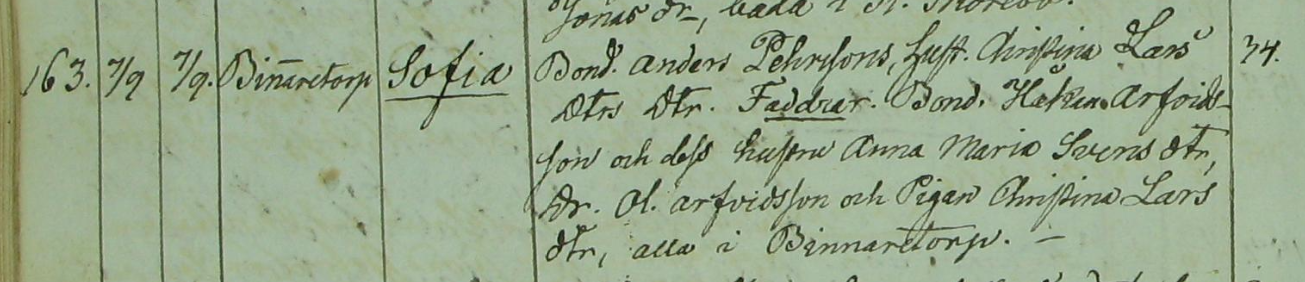 Jonas dr, båda i
163. 7/9 7/9. Binnaretorp Sofia Bond. Anders Pehrssons, hust. Christina Lars 34.
Dtrs Dtr. Faddrar. Bond. Håkan Arfvids-
son och dess hustru Anna Maria Svens dtr,
Dr. Ol. Arfvidsson och Pigan Christina Lars
dtr, alla i Binnaretorp. —